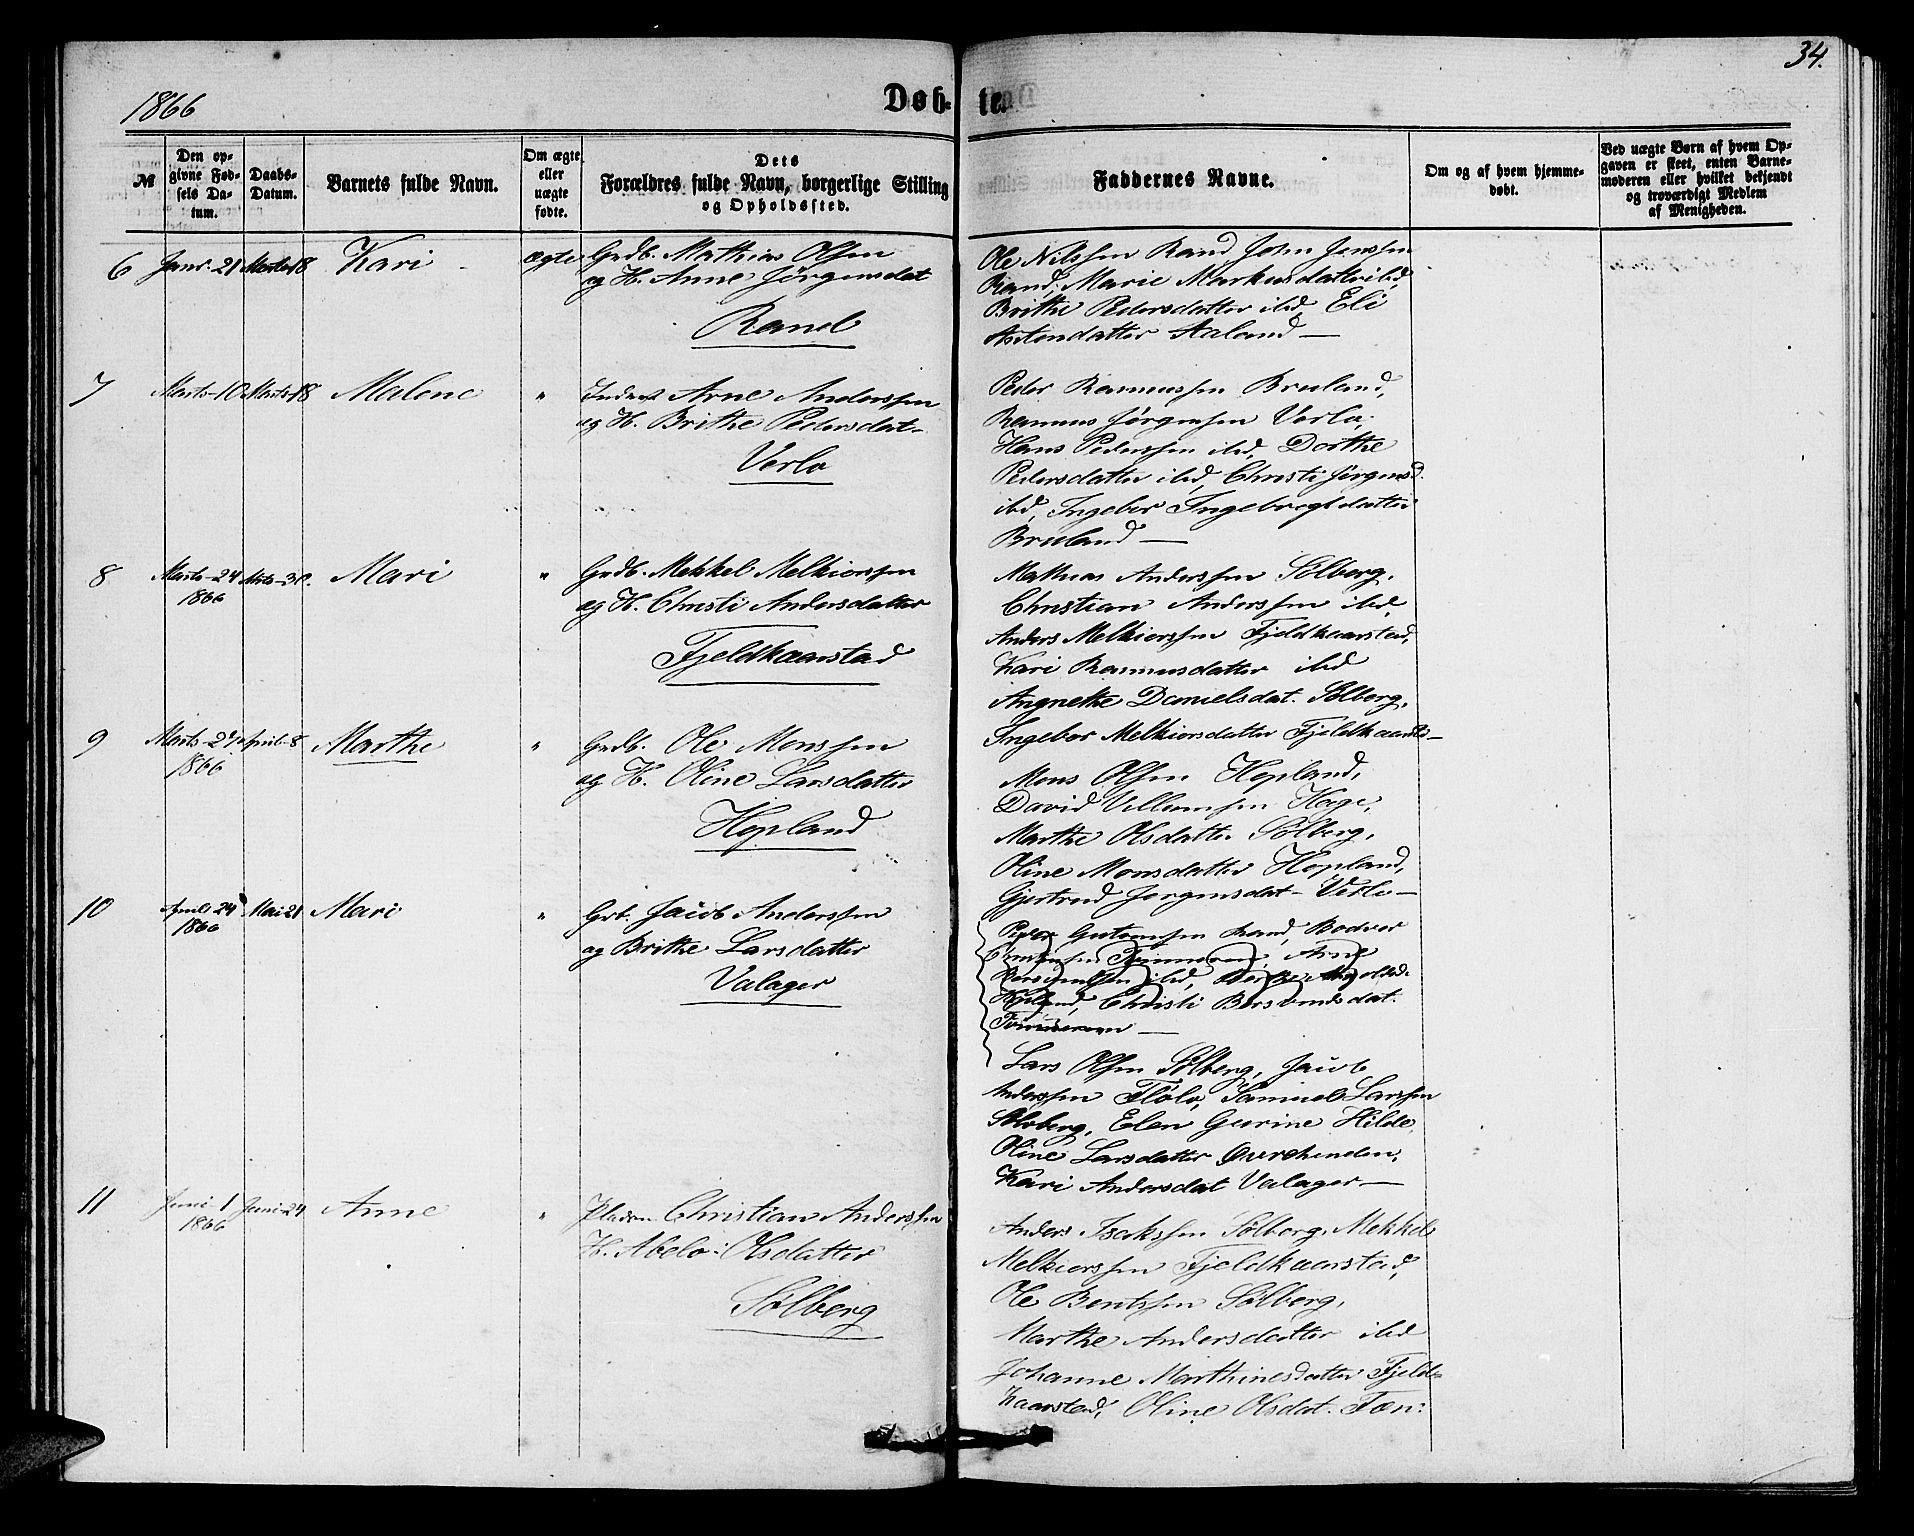 34.
1866
Døb-
te.
№
Den op-
givne Fød-
sels Da-
tum.
Daabs-
Datum.
Barnets fulde Navn.
Om ægte
eller
uægte
fødte.
Dets
Forældres fulde Navn, borgerlige Stilling
og Opholdssted.
Faddernes Navne.
Om og af hvem hjemme-
døbt.
Ved uægte Børn af hvem Op-
gaven er skeet, enten Barne-
moderen eller hvilket bekjendt
og troværdigt Medlem
af Menigheden.
6 Janr. 21 Marts 18 Kari ægte Grdb. Mathias Olsen
og H. Anne Jørgensdat
Rand
Ole Nilssen Rand John Jenssen
Rand, Marie Markusdatter ibd,
Brithe Pedersdatter ibd, Eli
datter Aaland —
7 Marts 10 Marts 18 Malene " Inderst Arne Anderssen
og H. Brithe Pedersdat-
Verlo
Peder Rasmussen Bruland,
Rasmus Jørgensen Verlo,
Hans Pederssen ibd, Dorthe
Pedersdatter ibd, Christi Jørgensd.
ibd, Ingebor Ingebregtdatter
Bruland —
8 Marts 24 1866 Marts 30. Mari " Grdb. Mekkel Melkiorssen
og H. Christi Andersdatter
Fjeldkaarstad
Mathias Anderssen Sølberg,
Christian Anderssen ibd,
Anders Melkiorssen Fjeldkaarstad,
Kari Rasmusdatter ibd
Angnethe Danielsdat. Sølberg,
Ingebor Melkiorsdatter Fjeldkaarst—
9 Marts 1866 April 8 Marthe " Grdb. Ole Monssen
og H. Oline Larsdatter
Hopland
Mons Olsen Hopland,
David Villumsen Hage,
Marthe Olsdatter Sølberg,
Oline Monsdatter Hopland,
Gjertrud Jørgensdat- Verlo—
10 April 24 1866 Mai 21 Mari " Grb. Jacob Anderssen
og Brithe Larsdatter
Valager
Peder Guttormsen Rand, Bodver
Arne
ibd,
Christi
Lars Olsen Sølberg, Jacob
Anderssen Flølo, Samuel Larssen
Sølberg, Elen Gurine Hilde,
Oline Larsdatter
Kari Andersdat Valager—
11 Juni 1 1866 Juni 24 Anne " Pladsm Christian Anderssen
H. Abelo: Olsdatter
Sølberg
Anders Isakssen Sølberg, Mekkel
Melkiorssen Fjeldkaarstad,
Ole Bentssen Sølberg,
Marthe Andersdatter ibd
Johanne Marthinesdatter Fjeld-
kaarstad, Oline Olsdat. Tøn: